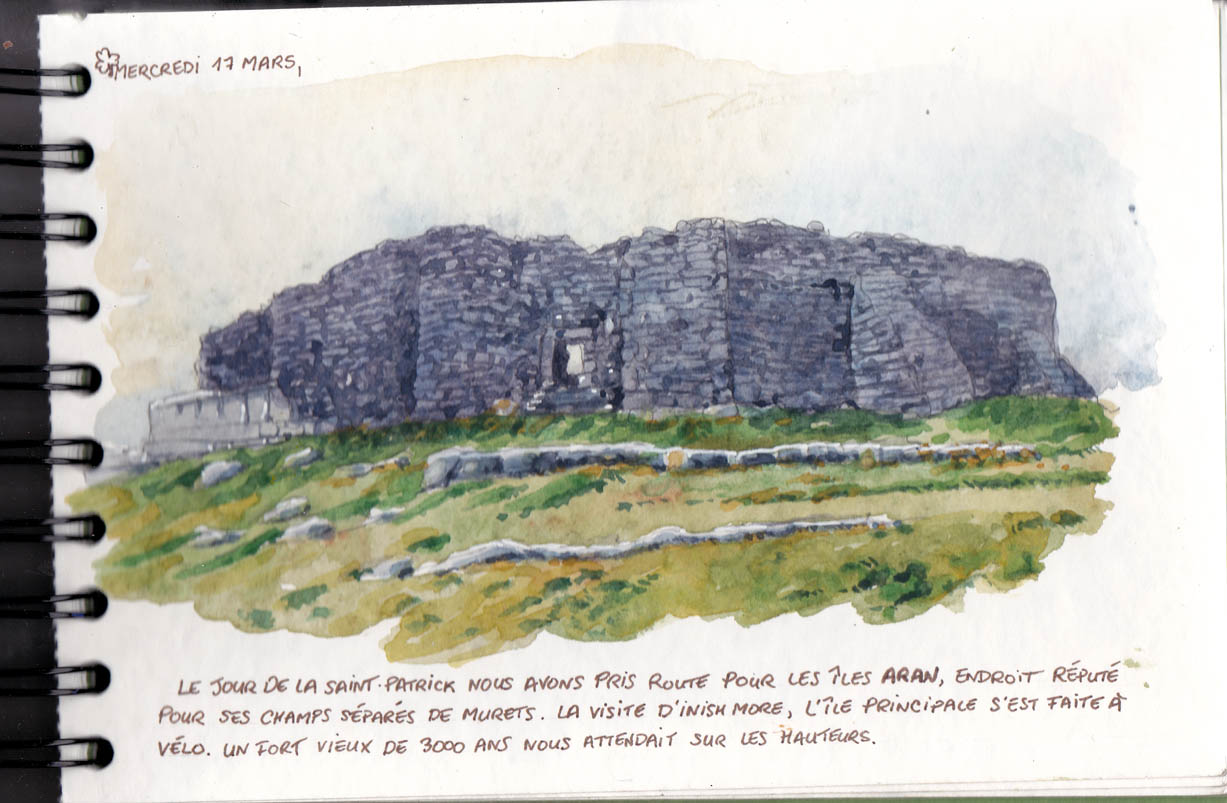 MERCREDI 17 MARS,
LE JOUR DE LA SAINT-PATRICK NOUS AVONS PRIS ROUTE POUR LES ÎLES ARAN, ENDROIT RÉPUTÉ
POUR SES CHAMPS SÉPARÉS DE MURETS. LA VISITE D'INISHMORE, L'ÎLE PRINCIPALE S'EST FAITE À
VÉLO. UN FORT VIEUX DE 3000 ANS NOUS ATTENDAIT SUR LES HAUTEURS.